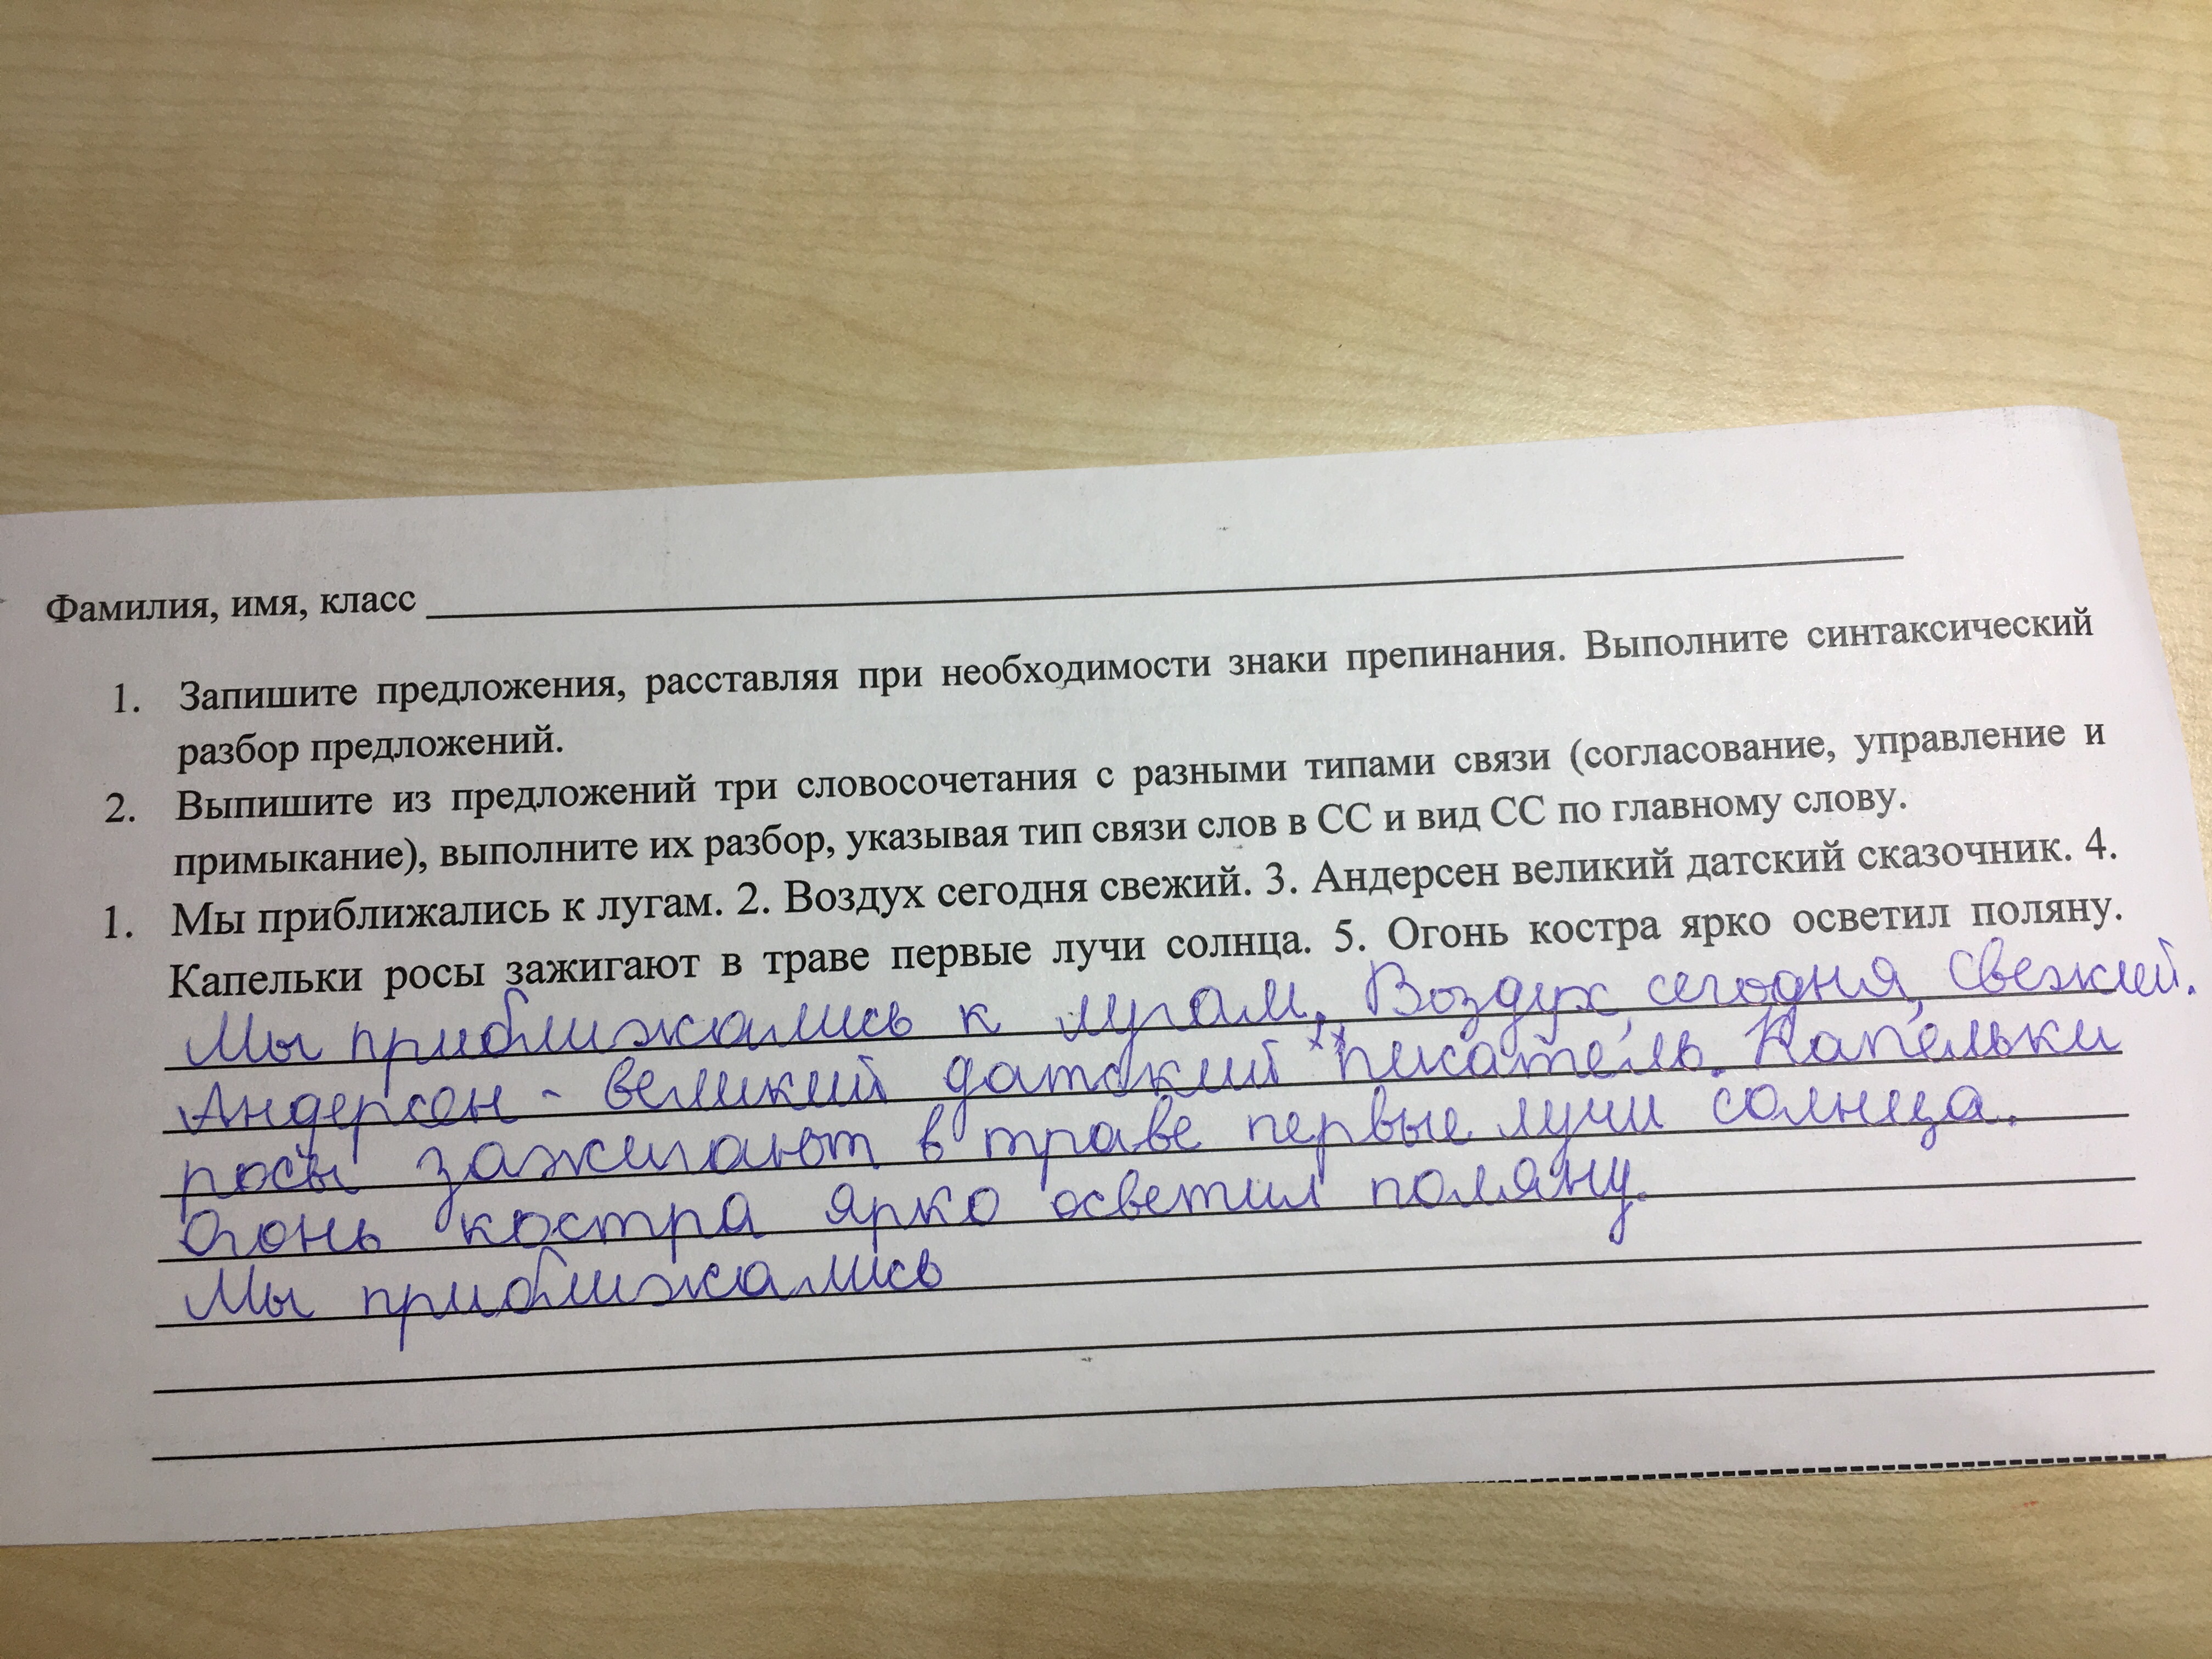 Фамилия, имя, класс
1. Запишите предложения, расставляя при необходимости знаки препинания. Выполните синтаксический
разбор предложений.
2. Выпишите из предложений три словосочетания с разными типами связи (согласование, управление и
примыкание), выполните их разбор, указывая тип связи слов в СС и вид СС по главному слову.
1. Мы приближались к лугам. 2. Воздух сегодня свежий. 3. Андерсен великий датский сказочник. 4.
Капельки росы зажигают в траве первые лучи солнца. 5. Огонь костра ярко осветил поляну.
Мы приближались к лугам. Воздух, сегодня, свежий.
Андерсен - великий датский писатель. Капельки
росы зажигают в траве первые лучи солнца.
Огонь костра ярко осветил поляну.
Мы приближались